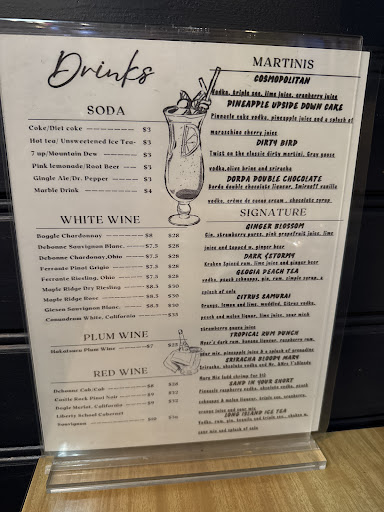 Drinks
SODA
Coke/Diet coke $3
Hot tea/ Unsweetened Ice Tea- $3
7 up/Mountain Dew $3
Pink lemonade/Root Beer $3
Gingle Ale/Dr. Pepper $3
Marble Drink $4
WHITE WINE
Boggle Chardonnay $8 $28
Debonne Sauvignon Blanc $7.5 $28
Debonne Chardonay,Ohio $7.5 $28
Ferrante Pinot Grigio $7.5 $28
Ferrante Riesling, Ohio $7.5 $28
Maple Ridge Dry Riesling $8.5 $30
Maple Ridge Rose $8.5 $30
Giesen Sauvignon Blanc $8.5 $30
Conundrum White, California $35
PLUM WINE
Hakutsuru Plum Wine $7 $25
RED WINE
Debonne Cab/Cab $8 $28
Castle Rock Pinot Noir $9 $32
Bogle Merlot, California $9 $32
Liberty School Cabernet
Sauvignon $10 $36
MARTINIS
COSMOPOLITAN
Vodka, triple sec, lime juice, cranberry juice
PINEAPPLE UPSIDE DOWN CAKE
Pinnacle cake vodka, pineapple juice and a splash of
maraschino cherry juice
DIRTY BIRD
Twist on the classic dirty martini, Gray goose
vodka, olive brine and sriracha
DORDA DOUBLE CHOCOLATE
Dorda double chocolate liqueur, Smirnoff vanilla
vodka, crème de cacao cream , chocolate syrup
SIGNATURE
GINGER BLOSSOM
Gin, strawberry puree, pink grapefruit juice, lime
juice and topped w. ginger beer
DARK &STORMY
Kraken Spiced rum, lime juice and ginger beer
GEOGIA PEACH TEA
vodka, peach schnapps, gin, rum, simple syrup, a
splash of cola
CITRUS SAMURAI
Orange, lemon and lime, muddled, Citrus vodka,
peach and melon liquor, lime juice, sour mix&
strawberry guava juice
TROPICAL RUM PUNCH
Meer's dark rum, banana liqueur, raspberry rum,
sour mix, pineapple juice & a splash of grenadine
SRIRACHA BLOODY MARY
Sriracha, absolute vodka and Mr. &Mrs T.&Bloody
Mary Mix (add shrimp for $2)
SAND IN YOUR SHORT
Pinnacle raspberry vodka, absolute vodka, peach
schnapps & melon liqueur, triple sec, cranberry,
orange juice and sour mix
LONG ISLAND ICE TEA
Vodka, rum, gin, tequila and triple sec, shaken w.
sour mix and splash of cola